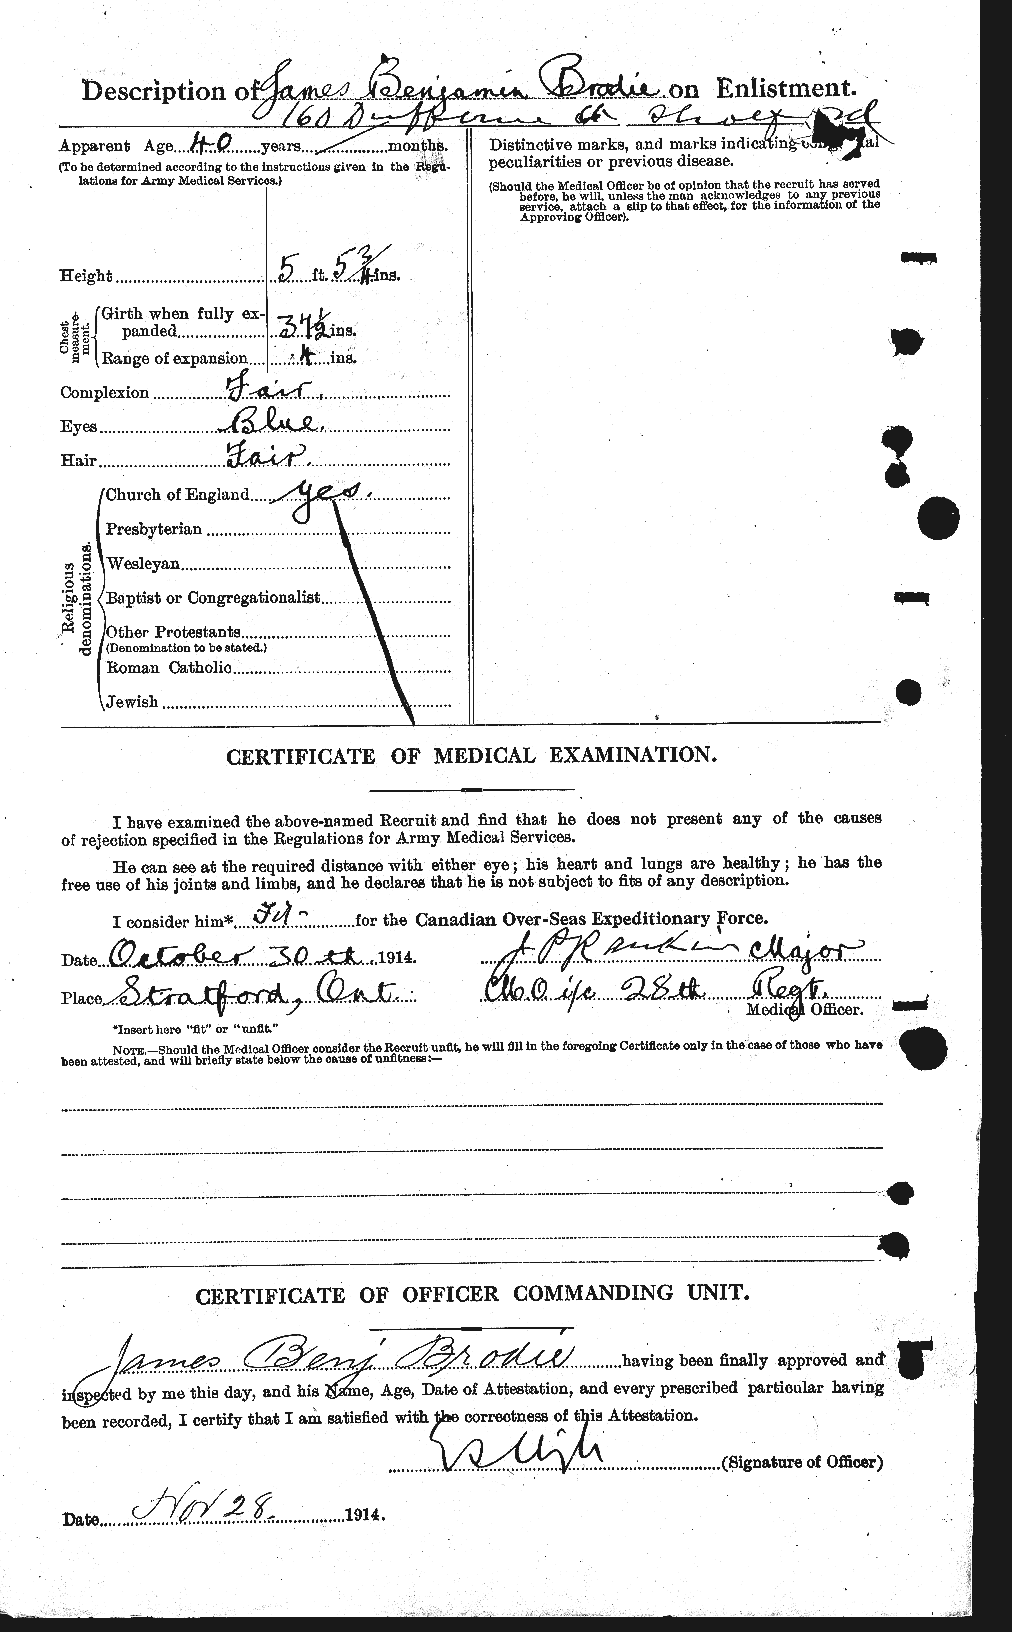 Description of James Benjamin Brodie on Enlistment.
160
Apparent Age 40 years months.
(To be determined according to the instructions given in the Regulations for Army Medical Services.)
Height 5 ft. 5 3/4 ins.
Chest measurement.
Girth when fully expanded 37 1/2 ins.
Range of expansion 4 ins.
Complexion Fair.
Eyes Blue.
Hair Fair.
Religious denominations.
Church of England yes.
Presbyterian
Wesleyan
Baptist or Congregationalist
Other Protestants
(Denomination to be stated.)
Roman Catholic
Jewish
Distinctive marks, and marks indicating
peculiarities or previous disease.
(Should the Medical Officer be of opinion that the recruit has served
before, he will, unless the man acknowledges to any previous
service, attach a slip to that effect, for the information of the
Approving Officer).
CERTIFICATE OF MEDICAL EXAMINATION.
I have examined the above-named Recruit and find that he does not present any of the causes
of rejection specified in the Regulations for Army Medical Services.
He can see at the required distance with either eye; his heart and lungs are healthy; he has the
free use of his joints and limbs, and he declares that he is not subject to fits of any description.
I consider him* Fit for the Canadian Over-Seas Expeditionary Force.
Date October 30th 1914. J P Rankin Major
Place Stratford, Ont. M.O i/c 28th Regt.
Medical Officer.
*Insert here "fit" or "unfit."
NOTE.—Should the Medical Officer consider the Recruit unfit, he will fill in the foregoing Certificate only in the case of those who have
been attested, and will briefly state below the cause of unfitness:—
CERTIFICATE OF OFFICER COMMANDING UNIT.
James Benj Brodie having been finally approved and
inspected by me this day, and his Name, Age, Date of Attestation, and every prescribed particular having
been recorded, I certify that I am satisfied with the correctness of this Attestation.
(Signature of Officer)
Date Nov 28. 1914.